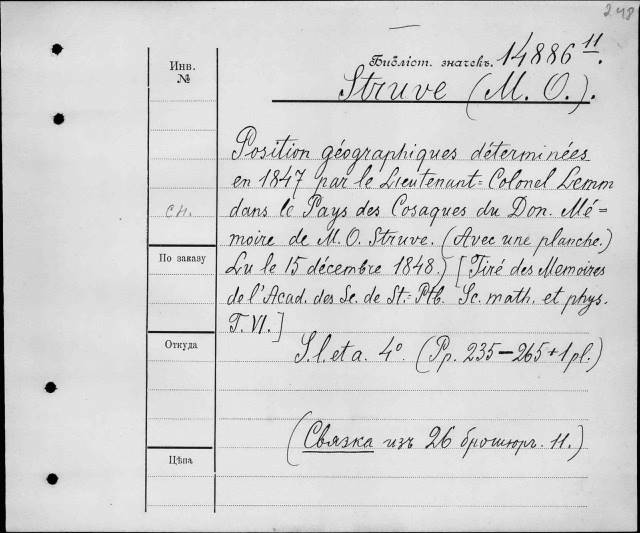 248
Инв.
№
Библіот. значекъ. 14886 11.
Struve (M. O.).
Position géographiques déterminées
en 1847 par le Lieutenant-Colonel Lemm
сн.
dans le Pays des Cosaques du Don. Mé-
moire de M. O. Struve. (Avec une planche.)
По заказу
Lu le 15 décembre 1848.) [Tiré des Memoires
de l'Acad. des Sc. de St.-Ptb. Sc. math. et phys.
T. VI.]
Откуда
S. l. et a. 4º. (Pp. 235–265+1 pl.)
(Связка изъ 26 брошюръ. 11.)
Цѣна